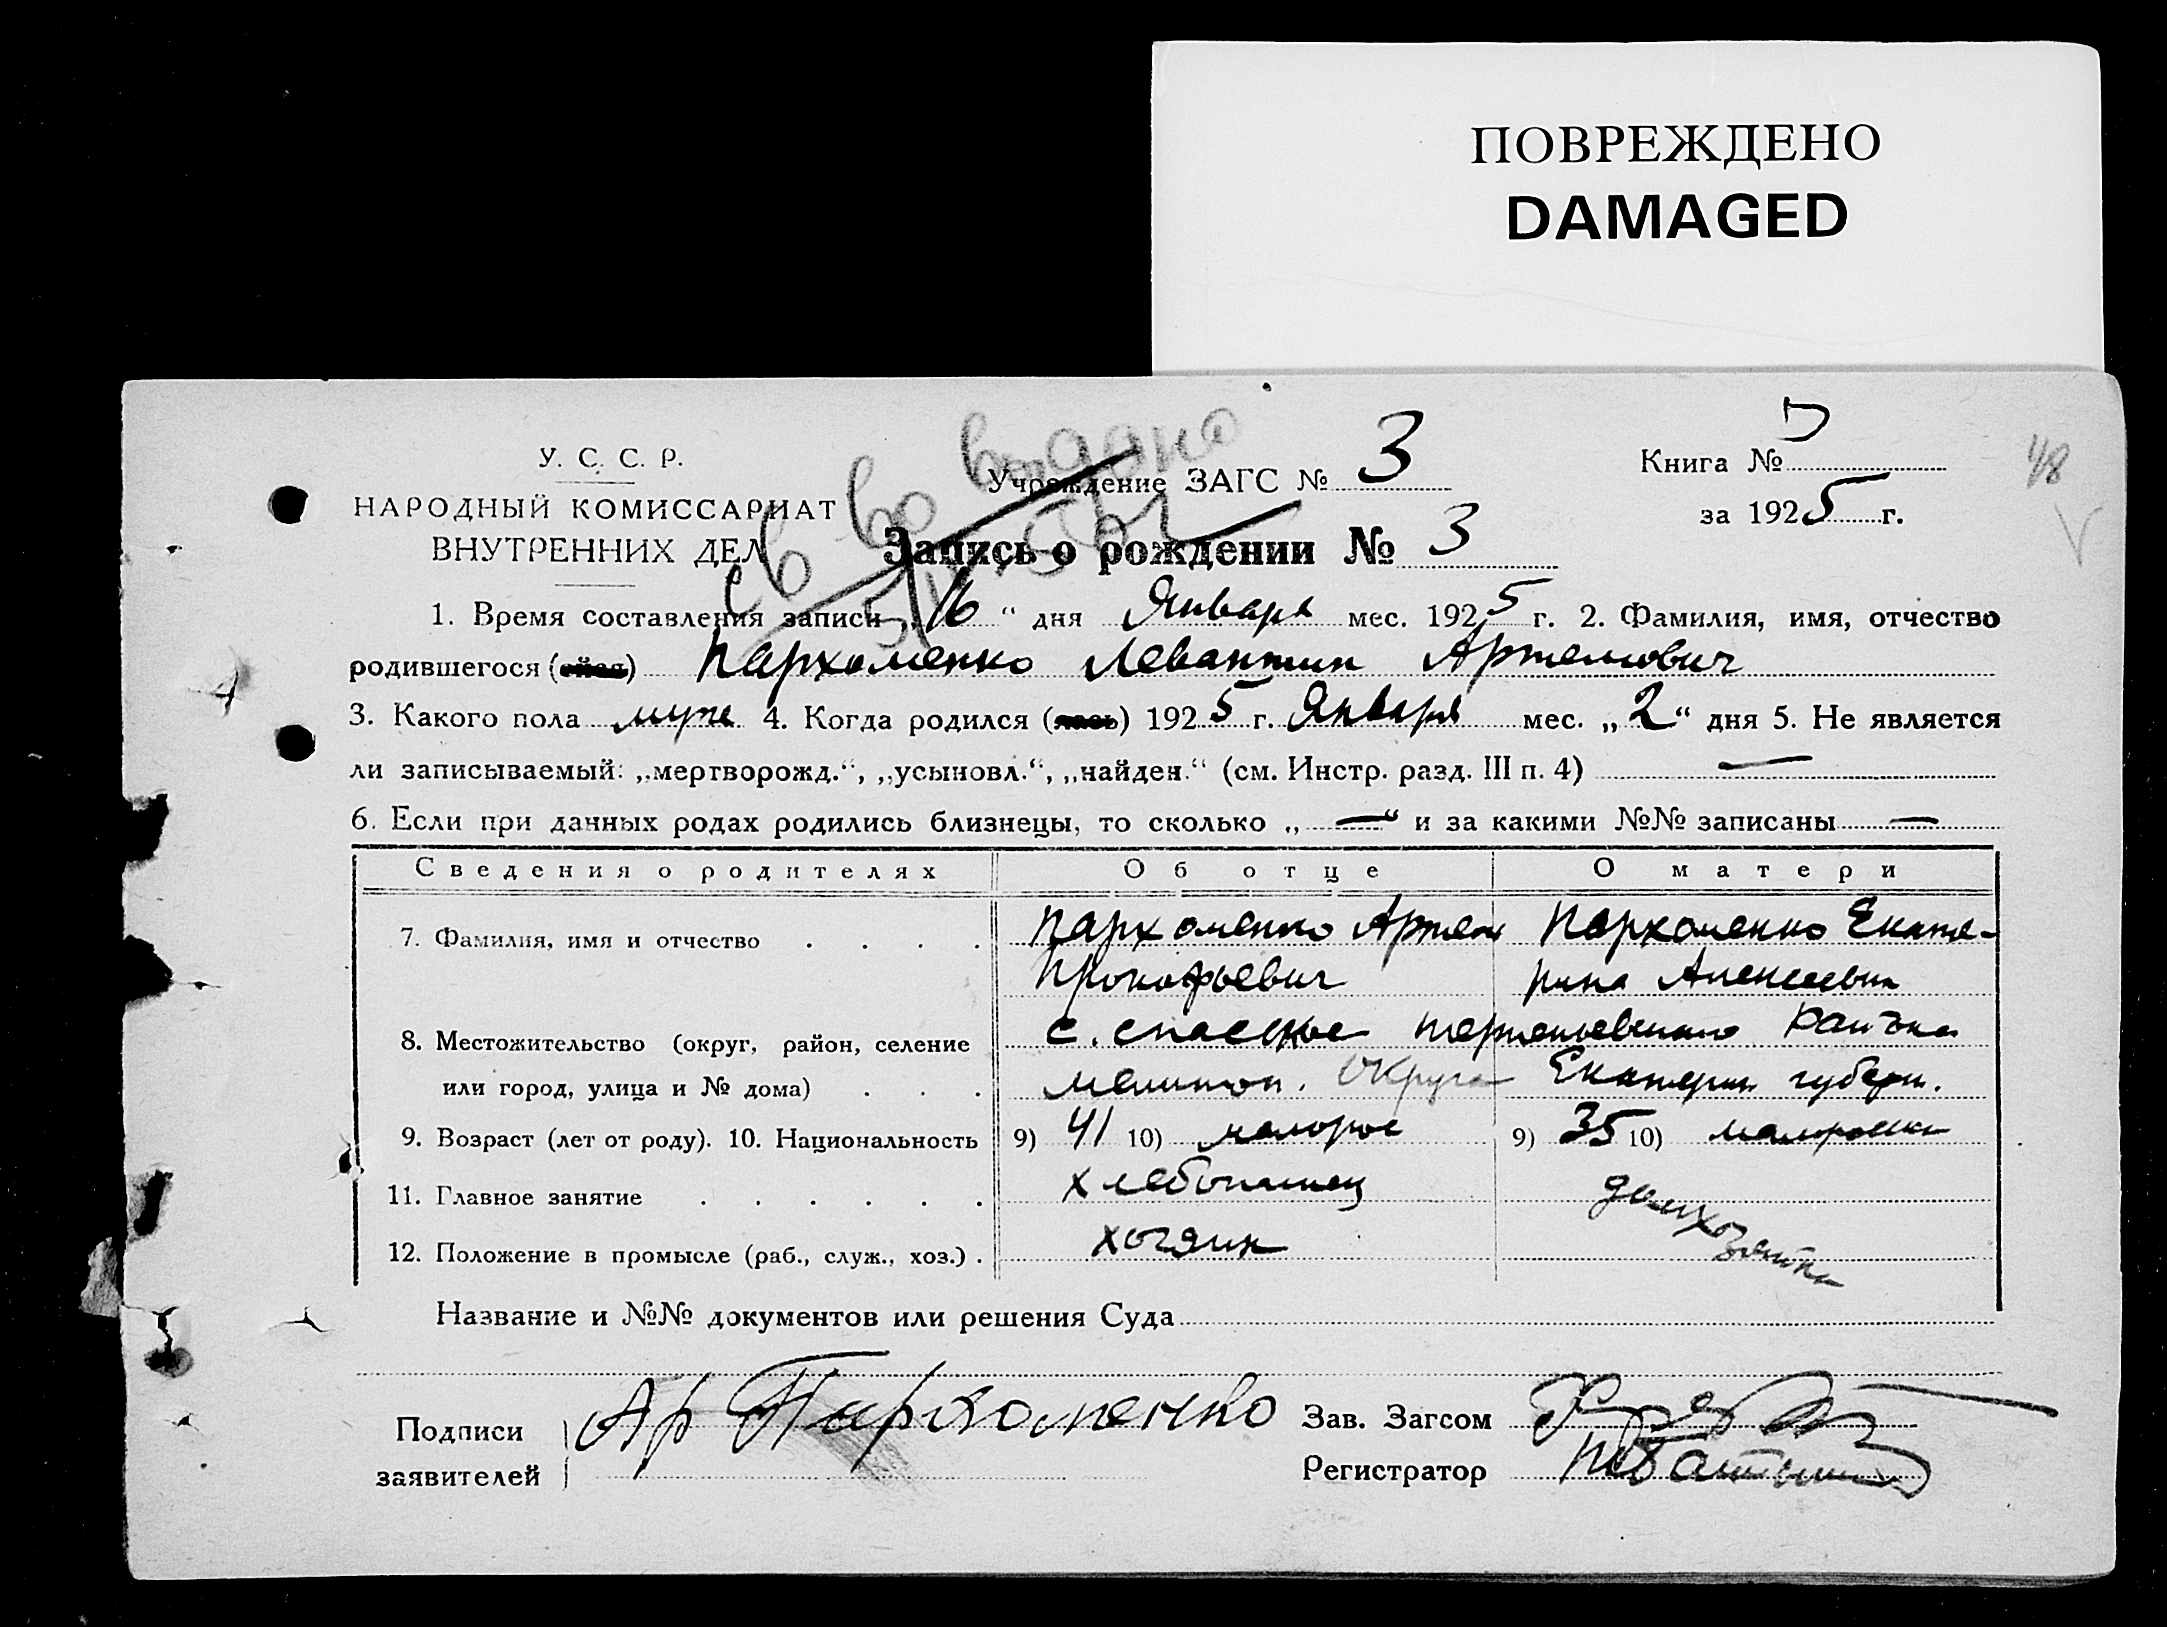 ПОВРЕЖДЕНО
DAMAGED
У. С. С. Р.
НАРОДНЫЙ КОМИССАРИАТ
ВНУТРЕННИХ ДЕЛ
Св во выдано
Учреждение ЗАГС № 3
Книга №
за 1925 г.
48
Запись о рождении № 3
1. Время составления записи „16“ дня Января мес. 1925 г. 2. Фамилия, имя, отчество
родившегося (ейся) Пархоменко Левантин Артемович
3. Какого пола муже 4. Когда родился (лась) 1925 г. Января мес. „2“ дня 5. Не является
ли записываемый: „мертворожд.“, „усыновл.“, „найден.“ (см. Инстр. разд. III п. 4) —
6. Если при данных родах родились близнецы, то сколько „—“ и за какими №№ записаны —
Сведения о родителях Об отце О матери
7. Фамилия, имя и отчество . . . . Пархоменко Артем Пархоменко Екате-
Прокофьевич рина Алексеевн
8. Местожительство (округ, район, селение с. Спасское района
или город, улица и № дома) . . . Мелитоп. округа Екатерин губерн.
9. Возраст (лет от роду). 10. Национальность 9) 41 10) малорос 9) 35 10) малороска
11. Главное занятие . . . . . . хлебопашец домхозяйка
12. Положение в промысле (раб., служ., хоз.) . хозяин
Название и №№ документов или решения Суда
Подписи
заявителей
Ар Пархоменко
Зав. Загсом
Регистратор